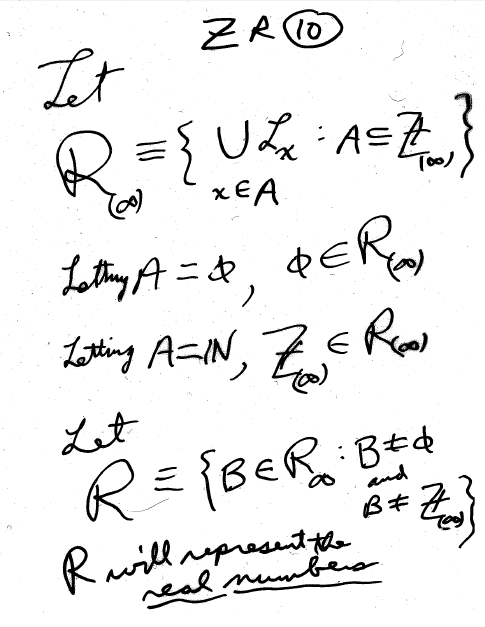 Z R 10
Let
R(∞) ≡ { ∪ ℒₓ : A ⊆ Z(∞) }
x ∈ A
Letting A = ϕ, ϕ ∈ R(∞)
Letting A = IN, Z(∞) ∈ R(∞)
Let
R ≡ { B ∈ R∞ : B ≠ ϕ
and
B ≠ Z(∞) }
R will represent the
real numbers